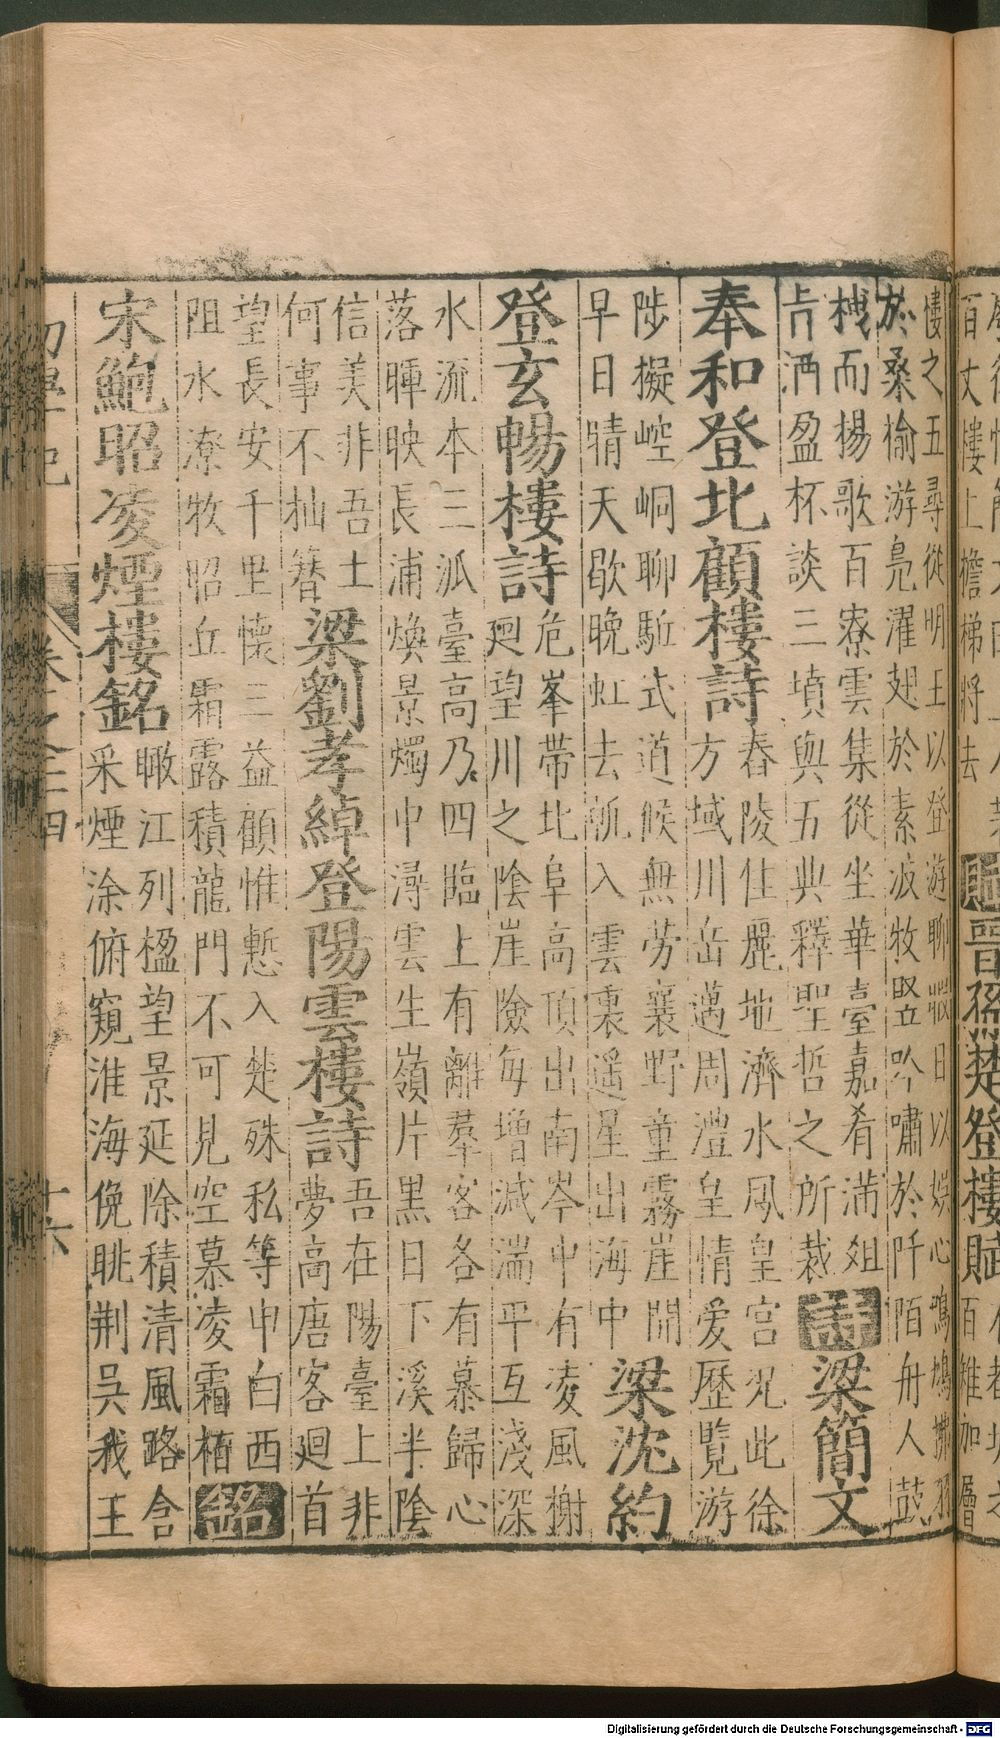 樓之五尋從明王以登游聊 日以娛心鳴鳩拂羽
於桑榆游鳧濯翅於素波牧豎吟嘯於阡陌舟人鼓
栧而楊歌百寮雲集從坐華臺嘉肴滿俎
㫖酒盈杯談三墳與五典釋聖哲之所裁
詩梁簡文
奉和登北顧樓詩
春陵佳麗地濟水鳳皇宮況此徐
方域川岳邁周澧皇情爱歷覧游
陟擬崆峒聊駈式道候無勞襄野童霧崖開
早日晴天歇晚虹去帆入雲裏遥星出海中
梁沈約
登玄暢樓詩
危峯帶北阜高頂出南岑中有凌風榭
廻望川之陰崖險每増減湍平互淺深
水流本三派臺高乃四臨上有離羣客客有慕歸心
落暉映長浦煥景燭中潯雲生嶺片黒日下溪半陰
信美非吾土
何事不抽簪
梁劉孝綽登陽雲樓詩
吾在陽臺上非
夢高唐客廻首
望長安千里懷三益顧惟慙入楚殊私等申白西
阻水潦牧昭丘霜露積龍門不可見空慕凌霜栢
銘
宋鮑昭凌煙樓銘
瞰江列楹望景延除積清風路含
采煙涂俯窺淮海俛眺荆吳我王
卷之
十六
百丈樓上 梯將去
賦晉孫楚登樓賦
百雉加層
Digitalisierung gefördert durch die Deutsche Forschungsgemeinschaft - DFG